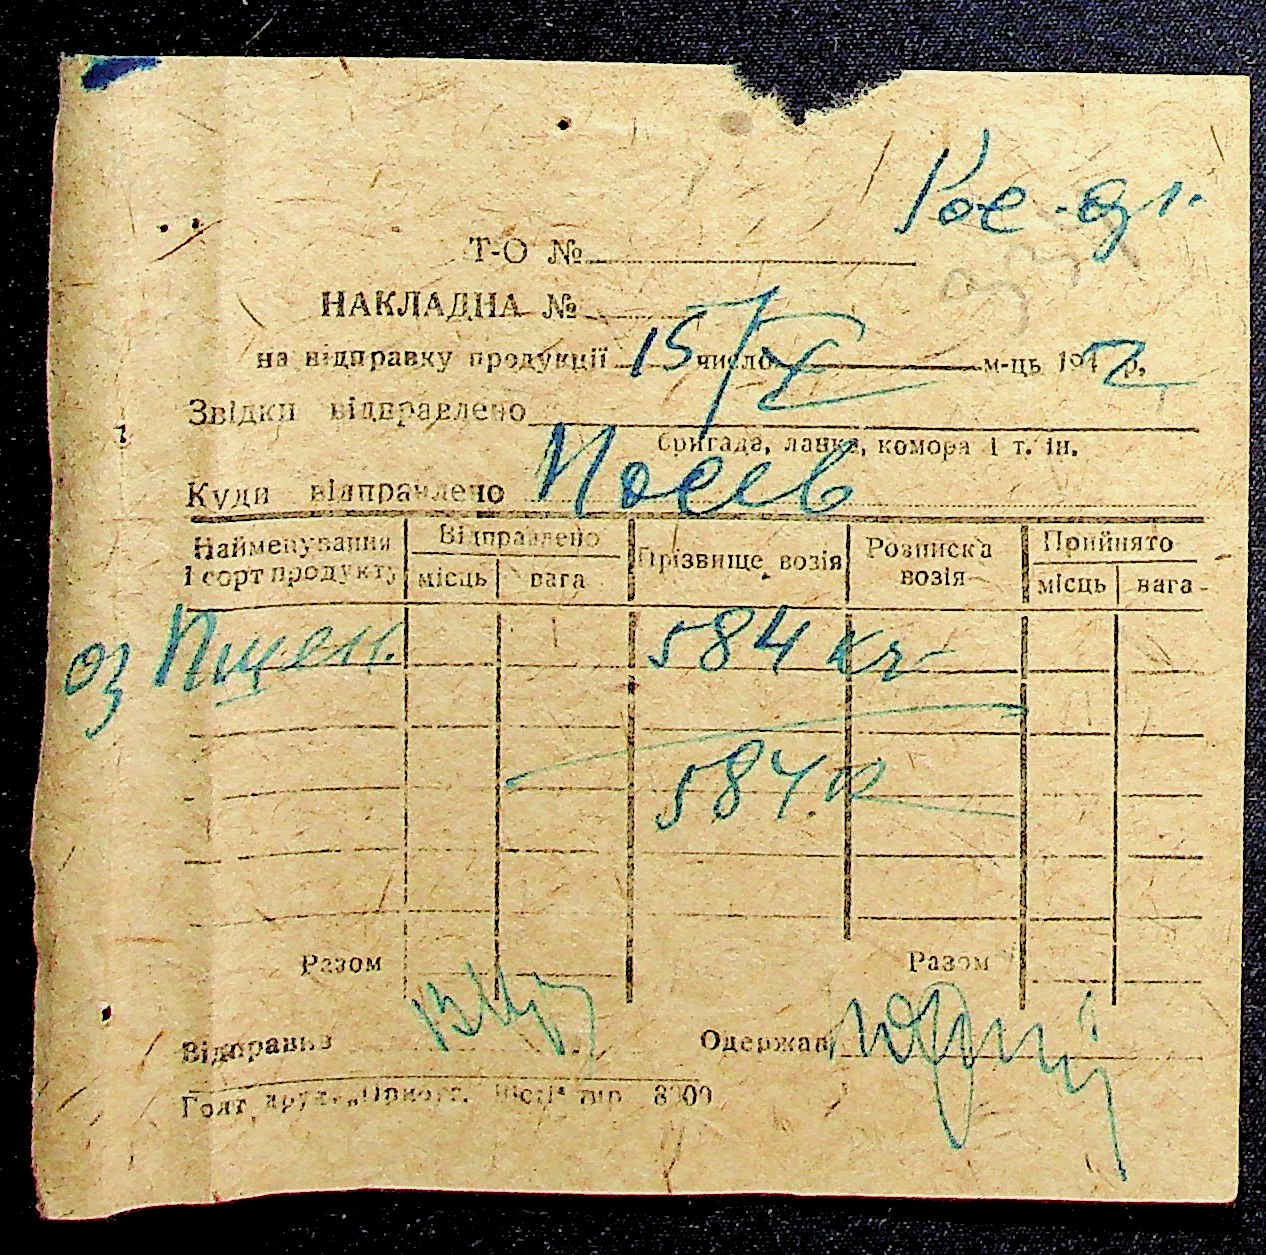 Т-О №
НАКЛАДНА №
на відправку продукції 15/X число м-ць 1942 р,
Звідки відправлено
бригада, ланка, комора і т. ін.
Куди відправлено Посев
Найменування і сорт продукту Відправлено місць вага Прізвище возія Розписка возія Прийнято місць вага
оз Пшен. 584 кг
584 к
Разом Разом
Відправив Одержав
Голт. друк. тир 8000